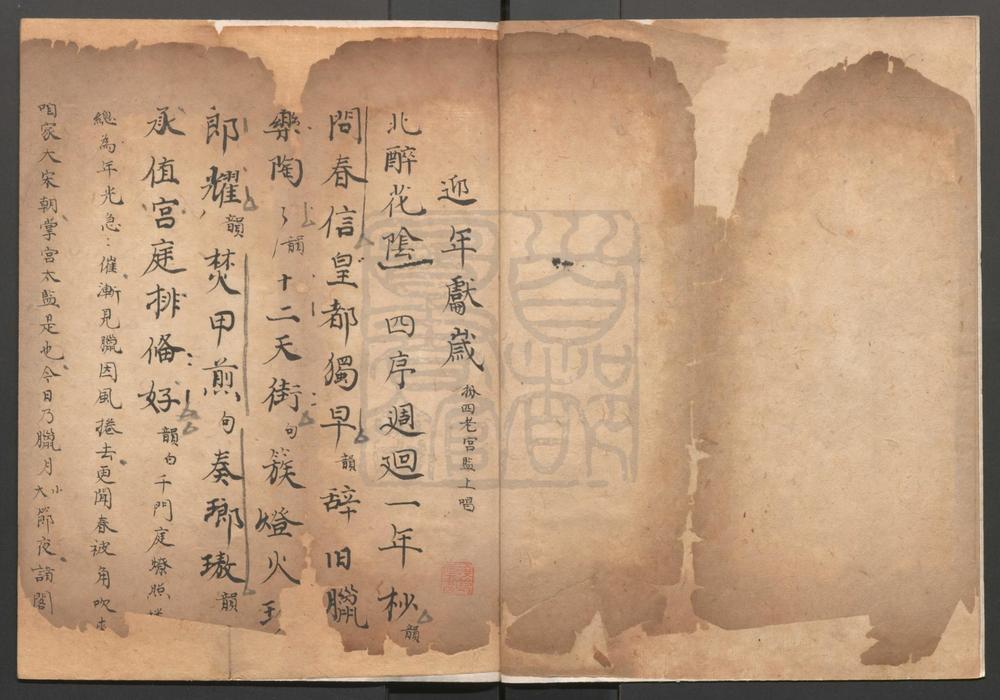 迎年獻歲 扮四老宮監上唱
北醉花陰 四序週迴一年杪韻
問春信皇都獨早韻辞旧臘
樂陶〻韻十二天街句簇燈火
郎耀韻焚甲煎句奏瑯璈韻
承值宮庭排俻好韻白千門庭燎照
總為年光急：催漸見臘因風捲去更聞春被角吹
咱家大宋朝掌宮太監是也今日乃臘月小大節夜請閣